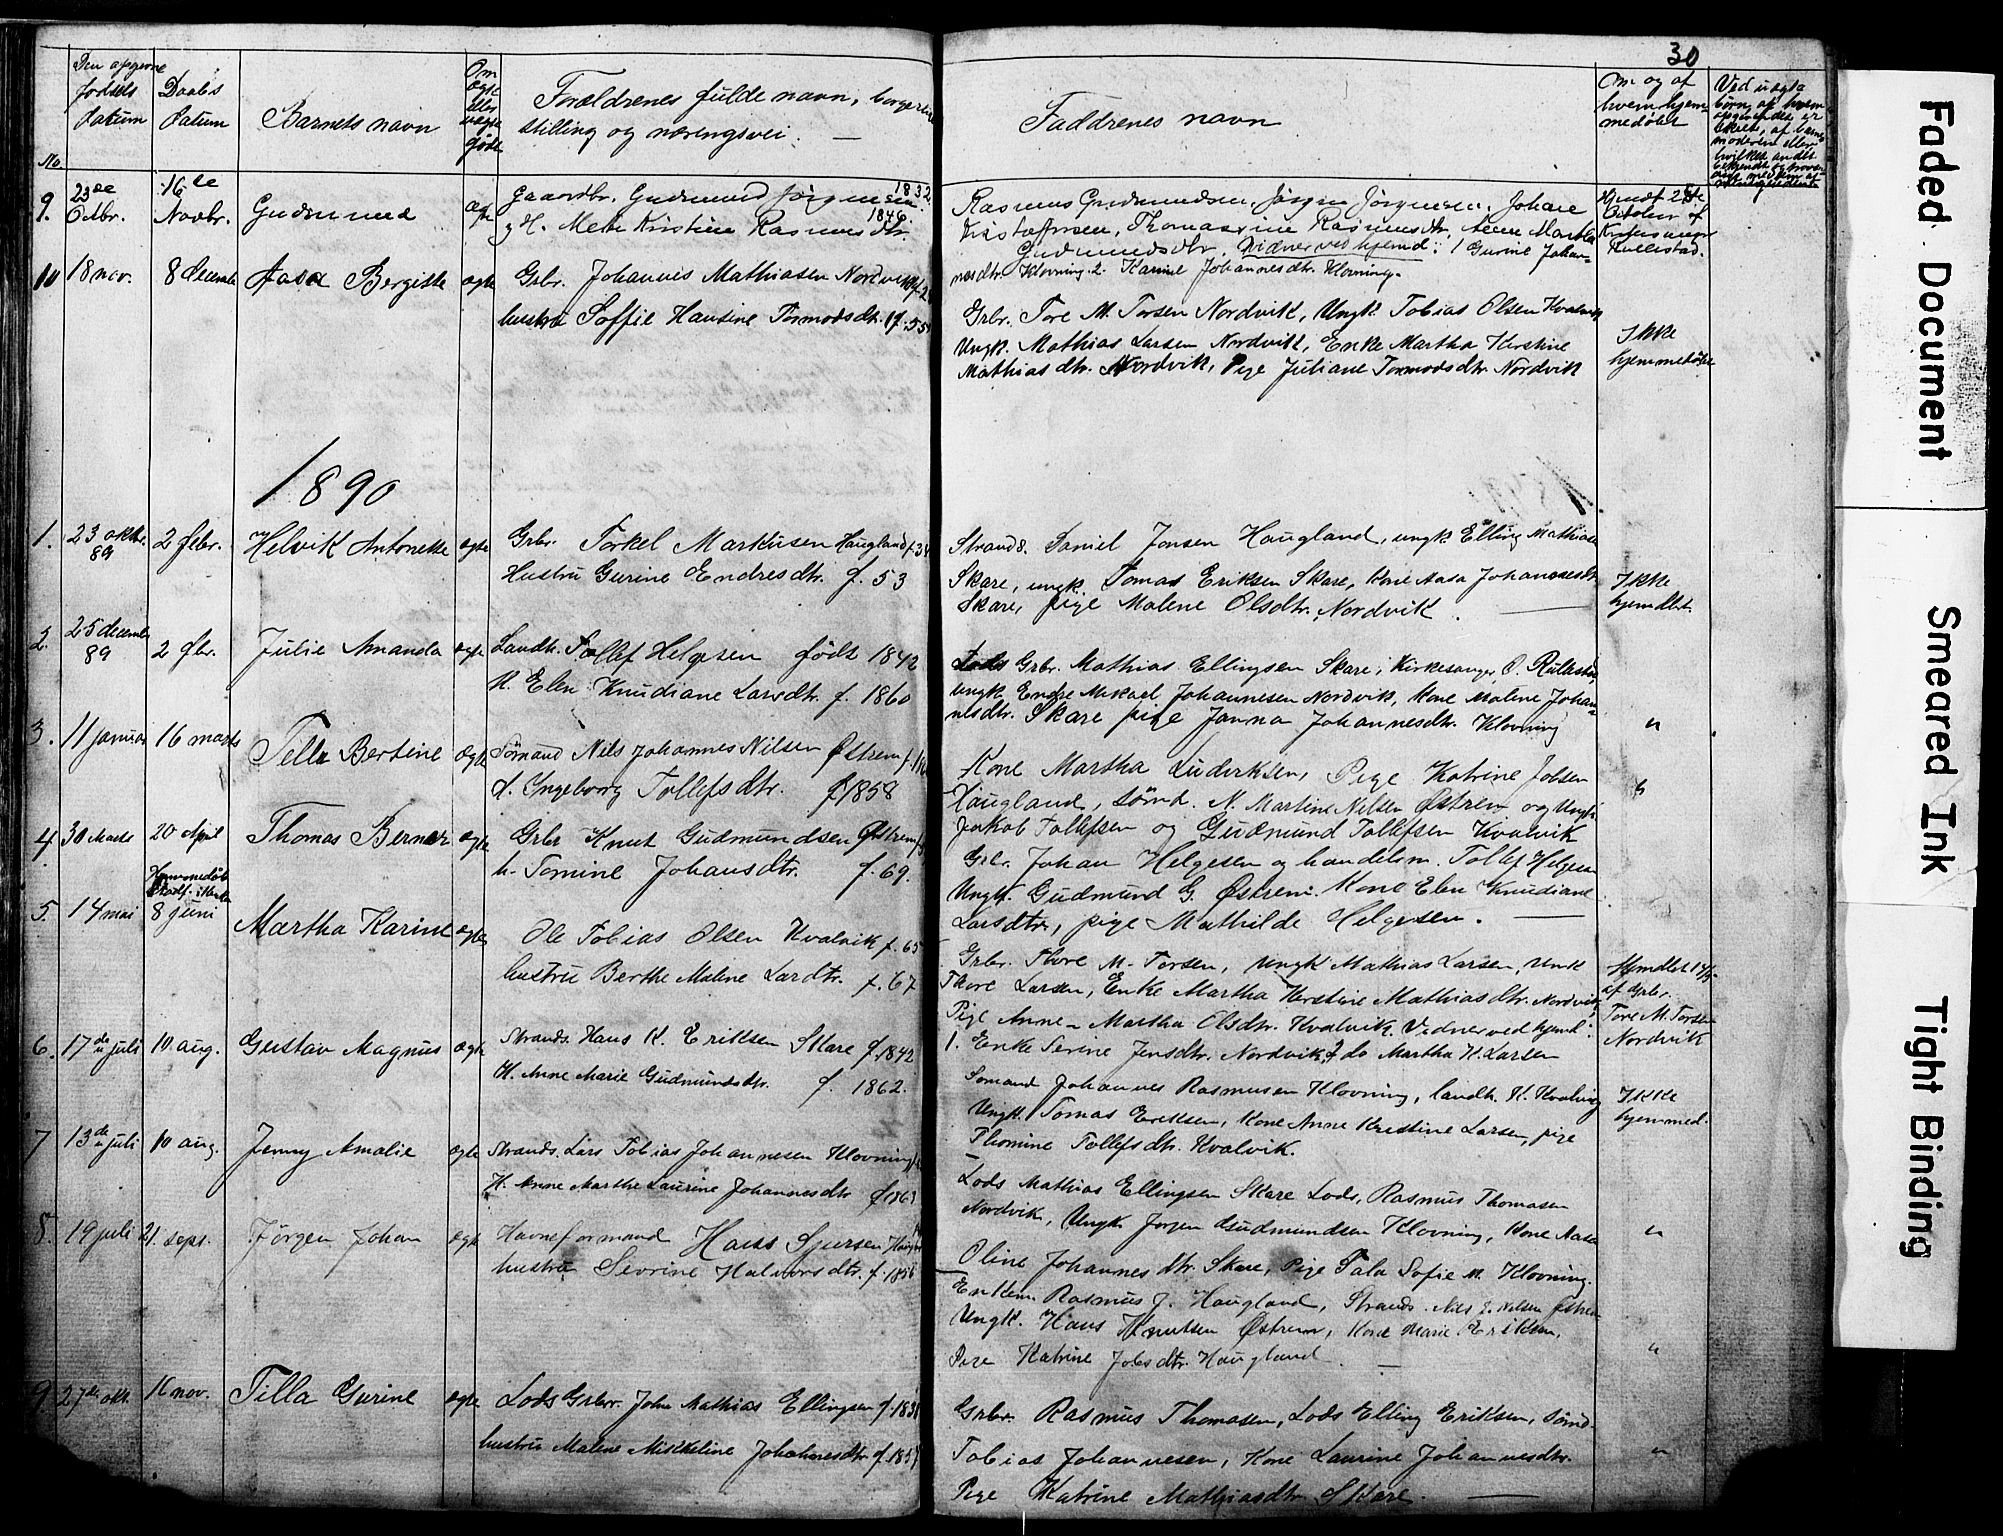 30
Den opgivne
fødsels
datum
Daabs
datum
Barnets navn
Om
ægte
eller
uægte
født
Forældrenes fulde navn, borgerlige
stilling og næringsvei. —
No.
Faddrenes navn
Om og af
hvem hjem-
medøbt
Ved uægte
børn, af hvem
9. 23de Octbr. 16de Novbr. Gudmund ægte Gaardbr. Gudmund Jørgensen 1832
og H. Mette Kristine Rasmusdtr. 1846
Rasmus Gudmundsen, Jørgen Jørgensen, Johan
Kristoffersen, Thomasine Rasmusdtr, Anne Martha
Gudmundsdtr. Vidner ved hjemd.: 1 Gurine Johan-
nesdtr. Klovning 2. Karine Johannesdtr. Klovning.
Hjemdt 28de
October af
Kirkesanger
Rullestad.
10 18 nov. 8 decembr Aasa Bergitte ægte Grbr. Johannes Mathiasen Nordvik
hustru Soffie Hansine Tormodsdtr. f. 55
Grbr. Tore M. Torsen Nordvik, Ungk. Tobias Olsen Kvalvik
Ungk. Mathias Larsen Nordvik, Enke Martha Kerstine
Mathiasdtr. Nordvik, Pige Juliane Tormodsdtr Nordvik
Ikke
hjemmedøbt
1890
1. 23 oktbr. 89 2 febr. Helvik Antonette ægte Grbr. Torkel Markusen Haugland f. 34
Hustru Gurine Endresdtr. f. 53
Strands. Daniel Jonsen Haugland, ungk. Elling Mathiasen
Skare, ungk. Tomas Eriksen Skare, kone Aasa Johannesdtr
Skare, pige Malene Olsdtr. Nordvik.
Ikke
hjemdbt.
2. 25 decembr 89 2 fbr. Julie Amanda ægte Landh. Tollef Helgesen født 1842
K. Elen Knudiane Larsdtr. f. 1860
Lods Grbr. Mathias Ellingsen Skare, Kirkesanger O. Rullestad
ungk. Endre Mikael Johannesen Nordvik, kone Malene Johan-
nesdtr. Skare pige Janna Johannesdtr. Klovning
"
3. 11 januar 16 marts Tella Bertine ægte Sømand Nils Johannes Nilsen Østrem
H. Ingeborg Tollefsdtr. f 1858
Kone Martha Luderksen, Pige Katrine Jobsen
Haugland, sømd. N. Martin Nilsen Østrem og Ungk.
Jakob Tollefsen og Gudmund Tollefsen Kvalvik
"
4 30 Marts 20 April Thomas Berner ægte Grbr Knut Gudmundsen Østrem
h. Tomine Johansdtr. f. 69.
Grbr. Johan Helgesen og handelsm. Tollef Helgesen
Ungk. Gudmund G. Østrem. Kone Elen Knudiane
Larsdtr, pige Mathilde Helgesen.
Hjemmedøbt
Stadf. i Kirken
5. 14 mai 8 juni Martha Karine ægte Ole Tobias Olsen Kvalvik f. 65
hustru Berthe Malene Lardtr. f. 67
Grbr. Thore M. Torsen, Ungk Mathias Larsen, Unk
Thore Larsen, Enke Martha Kerstine Mathiasdtr. Nordvik
Pige Anne-Martha Olsdtr. Kvalvik. Vidner ved hjemd:
1. Enke Serine Jensdtr. Nordvik, 2 do Martha K. Larsen
Hjemdbt 14/5
af grbr.
Tore M. Torsen
Nordvik
6. 17de juli 10 aug. Gustav Magnus ægte Strands. Hans K. Eriksen Skare f. 1842
H. Anne Marie Gudmundsdtr. f. 1862.
Sømand Johannes Rasmusen Klovning, landh. K. Kvalvig
Ungk. Tomas Eriksen, Kone Anne Kristine Larsen, pige
Thomine Tollefsdtr. Kvalvik.
Ikke
hjemmed.
7 13de juli 10 aug. Jenny Amalie ægte Strands. Lars Tobias Johannesen Klovning
H. Anne Marthe Laurine Johannesdtr f 1863
Lods Mathias Ellingsen Skare Lods, Rasmus Thomasen
Nordvik, Ungk. Jørgen Gudmundsen Klovning, Kone Aasa
Oline Johannesdtr. Skare, Pige Tala Sofie M. Klovning.
"
8. 19 juli 21. sept. Jørgen Johan ægte Havneformand Hans Sjursen Haugland
hustru Sevrine Halvorsdtr. f. 1856
Enkem. Rasmus J. Haugland, Strands. Nils E. Nilsen Østrem
Ungk. Hans Knutsen Østrem, Kone Marie Eriksen,
Pige Katrine Jobsdtr. Haugland.
"
9 27de okt. 16 nov. Tilla Gurine ægte Lods Grbr. John Mathias Ellingsen f. 1838
hustru Malene Mikkeline Johannesdtr f. 1857
Grbr. Rasmus Thomasen, Lods Elling Eriksen, sømd.
Tobias Johannesen, Kone Laurine Johannesdtr.
Pige Katrine Mathiasdtr Skare.
"
Faded Document
Smeared Ink
Tight Binding